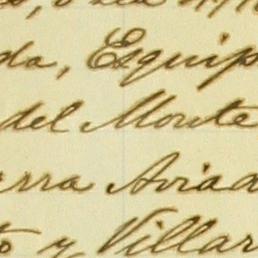 da, Esquip
del Monte
rra Aviad
to y Villar